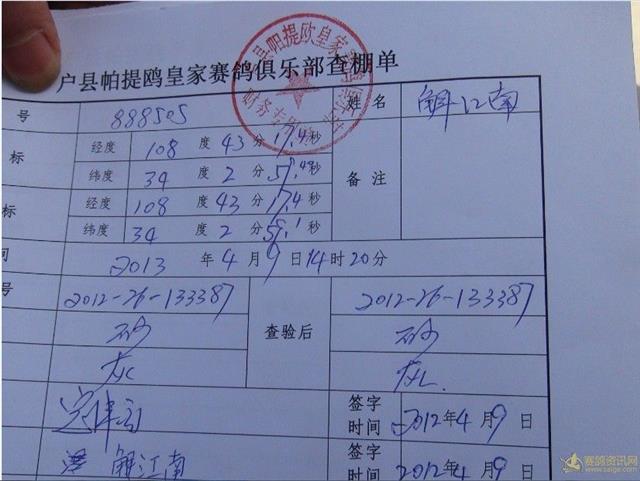 户县帕提鸥皇家赛鸽俱乐部查棚单
号 888505 姓名 解江南
标 经度 108 度 43 分 17.4 秒 备注
纬度 34 度 2 分 57.4 秒
标 经度 108 度 43 分 17.4 秒
纬度 34 度 2 分 秒
间 2013 年 4 月 9 日 14 时 20 分
号 2012-26-133387 查验后 2012-26-133387
砂 砂
灰 灰
签字时间 2012年4月9日
解江南 签字时间 2012年4月9日
赛鸽资讯网
www.saige.com